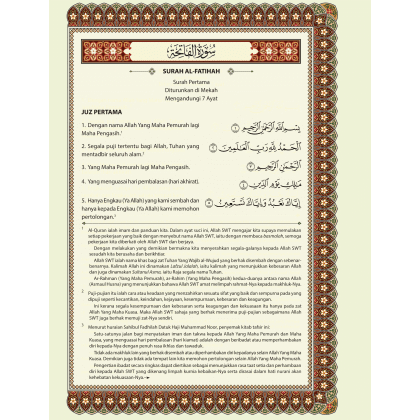 سُورَةُ الْفَاتِحَة
SURAH AL-FATIHAH
Surah Pertama
Diturunkan di Mekah
Mengandungi 7 Ayat
JUZ PERTAMA
1. Dengan nama Allah Yang Maha Pemurah lagi
Maha Pengasih.¹
بِسْمِ اللَّهِ الرَّحْمَٰنِ الرَّحِيمِ ١
2. Segala puji tertentu bagi Allah, Tuhan yang
mentadbir seluruh alam.²
الْحَمْدُ لِلَّهِ رَبِّ الْعَالَمِينَ ٢
3. Yang Maha Pemurah lagi Maha Pengasih.
الرَّحْمَٰنِ الرَّحِيمِ ٣
4. Yang menguasai hari pembalasan (hari akhirat).
مَالِكِ يَوْمِ الدِّينِ ٤
5. Hanya Engkau (Ya Allah) yang kami sembah dan
hanya kepada Engkau (Ya Allah) kami memohon
pertolongan.³
إِيَّاكَ نَعْبُدُ وَإِيَّاكَ نَسْتَعِينُ ٥
¹ Al-Quran ialah imam dan panduan kita. Dalam ayat suci ini, Allah SWT mengajar kita supaya memulakan
setiap pekerjaan yang baik dengan menyebut nama Allah SWT, iaitu dengan membaca bismillah, semoga
pekerjaan kita diberkati oleh Allah SWT dan berjaya.
Dengan melakukan yang demikian bermakna kita menyerahkan segala-galanya kepada Allah SWT
sesudah kita berusaha dan berikhtiar.
Allah SWT ialah nama khas bagi zat Tuhan Yang Wajib al-Wujud yang berhak disembah dengan sebenar-
benarnya. Kalimah Allah ini dinamakan Lafzul Jalalah, iaitu kalimah yang menunjukkan kebesaran Allah
dan juga dinamakan Sultanul Asma, iaitu Raja segala nama Tuhan.
Ar-Rahman (Yang Maha Pemurah), ar-Rahim (Yang Maha Pengasih) kedua-duanya antara nama Allah
(Asmaul Husna) yang menunjukkan bahawa Allah SWT amat melimpah rahmat-Nya kepada makhluk-Nya.
² Puji-pujian itu ialah cara atau keadaan yang menzahirkan sesuatu sifat yang baik dan sempurna pada yang
dipuji seperti kecantikan, keindahan, kejayaan, kesempurnaan, kebesaran dan keagungan.
Ini kerana segala kesempurnaan dan kebesaran serta keagungan dan kekuasaan itu hanya pada zat
Allah Yang Maha Kuasa. Maka Allah SWT sahaja yang berhak menerima puji-pujian sebagaimana Allah
SWT juga berhak memuji zat-Nya sendiri.
³ Menurut huraian Sahibul Fadhilah Datuk Haji Muhammad Noor, penyemak kitab tafsir ini:
Satu-satunya jalan bagi menyatakan iman dan takwa kepada Allah Yang Maha Pemurah dan Maha
Kuasa, yang menguasai hari pembalasan (hari kiamat) adalah dengan beribadat atau memperhambakan
diri kepada-Nya dengan penuh rasa ikhlas dan tawaduk.
Tidak ada makhluk lain yang berhak disembah atau diperhambakan diri kepadanya selain Allah Yang Maha
Kuasa. Demikian juga tidak ada tempat lain kita memohon pertolongan selain Allah Yang Maha Pemurah.
Pengertian ibadat secara ringkas dapat diertikan sebagai menunjukkan rasa taat setia dan perhambaan
diri kepada Allah SWT yang didorong limpah kurnia kebaikan-Nya serta disusuli dalam hati nurani akan
kehebatan kekuasaan-Nya.